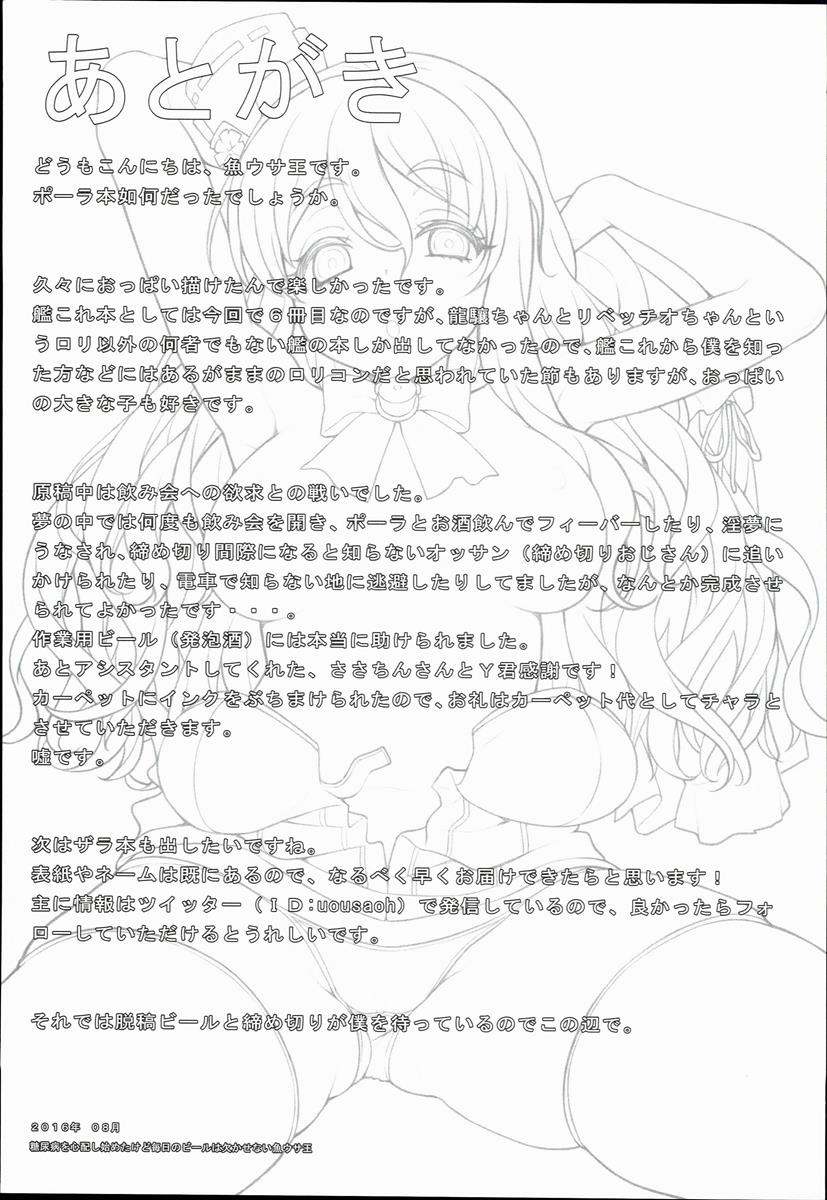 あとがき
どうもこんにちは、魚ウサ王です。
ポーラ本如何だったでしょうか。
久々におっぱい描けたんで楽しかったです。
艦これ本としては今回で６冊目なのですが、龍驤ちゃんとリベッチオちゃんとい
うロリ以外の何者でもない艦の本しか出してなかったので、艦これから僕を知っ
た方などにはあるがままのロリコンだと思われていた節もありますが、おっぱい
の大きな子も好きです。
原稿中は飲み会への欲求との戦いでした。
夢の中では何度も飲み会を開き、ポーラとお酒飲んでフィーバーしたり、淫夢に
うなされ、締め切り間際になると知らないオッサン（締め切りおじさん）に追い
かけられたり、電車で知らない地に逃避したりしてましたが、なんとか完成させ
られてよかったです・・・。
作業用ビール（発泡酒）には本当に助けられました。
あとアシスタントしてくれた、ささちんさんとＹ君感謝です！
カーペットにインクをぶちまけられたので、お礼はカーペット代としてチャラと
させていただきます。
嘘です。
次はザラ本も出したいですね。
表紙やネームは既にあるので、なるべく早くお届けできたらと思います！
主に情報はツイッター（ＩＤ：uousaoh）で発信しているので、良かったらフォ
ローしていただけるとうれしいです。
それでは脱稿ビールと締め切りが僕を待っているのでこの辺で。
２０１６年　０８月
糖尿病を心配し始めたけど毎日のビールは欠かせない魚ウサ王